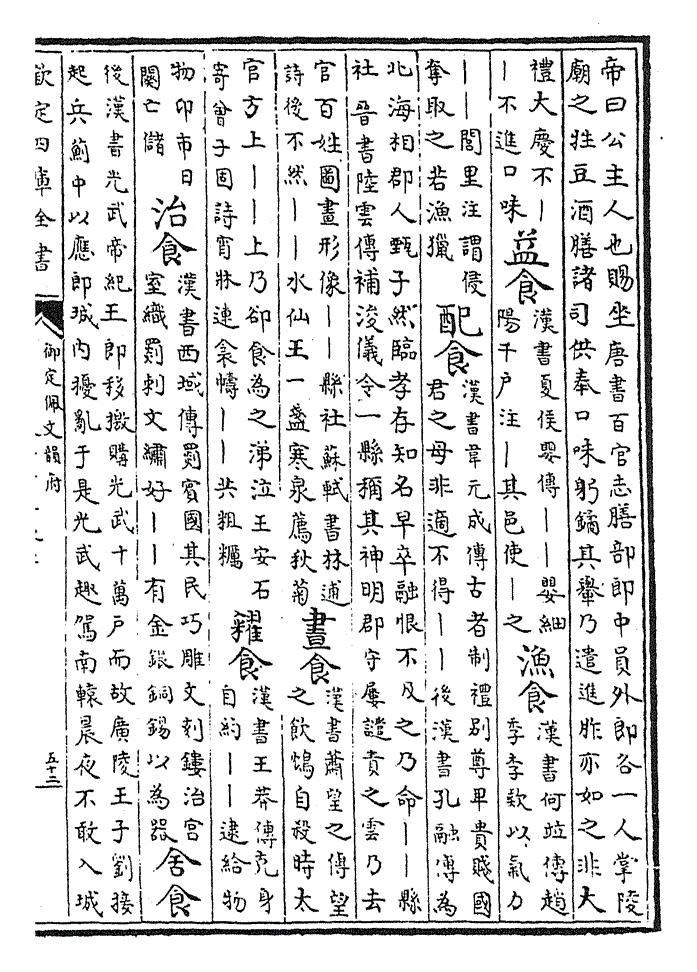 帝曰公主人也賜坐唐書百官志膳部郎中員外郎各一人掌陵
廟之牲豆酒膳諸司供奉口味躬鐍其轝乃遣進胙亦如之非大
禮大慶不｜
｜不進口味
益食
漢書夏侯嬰傳｜｜嬰細
陽千戶注｜其邑使｜之
漁食
漢書何竝傳趙
季李欵以氣力
｜｜閭里注謂侵
奪取之若漁獵
配食
漢書韋元成傳古者制禮别尊卑貴賤國
君之母非適不得｜｜後漢書孔融傳為
北海相郡人甄子然臨孝存知名早卒融恨不及之乃命｜｜縣
社 晉書陸雲傳補浚儀令一縣稱其神明郡守屢譴責之雲乃去
官百姓圖畫形像｜｜縣社蘇軾書林逋
詩後不然｜｜水仙王一盞寒泉薦秋菊
晝食
漢書蕭望之傳望
之飲鴆自殺時太
官方上｜｜上乃卻食為之涕泣王安石
寄曾子固詩宵牀連衾幬｜｜共粗糲
糴食
漢書王莽傳克身
自約｜｜逮給物
物卬市日
闋亡儲
治食
漢書西域傳罽賓國其民巧雕文刻鏤治宮
室織罽刺文繡好｜｜有金銀銅錫以為器
舍食
後漢書光武帝紀王郎移檄購光武十萬戶而故廣陵王子劉接
起兵薊中以應郎城内擾亂于是光武趣駕南轅晨夜不敢入城
欽定四庫全書
御定佩文韻府
五十三